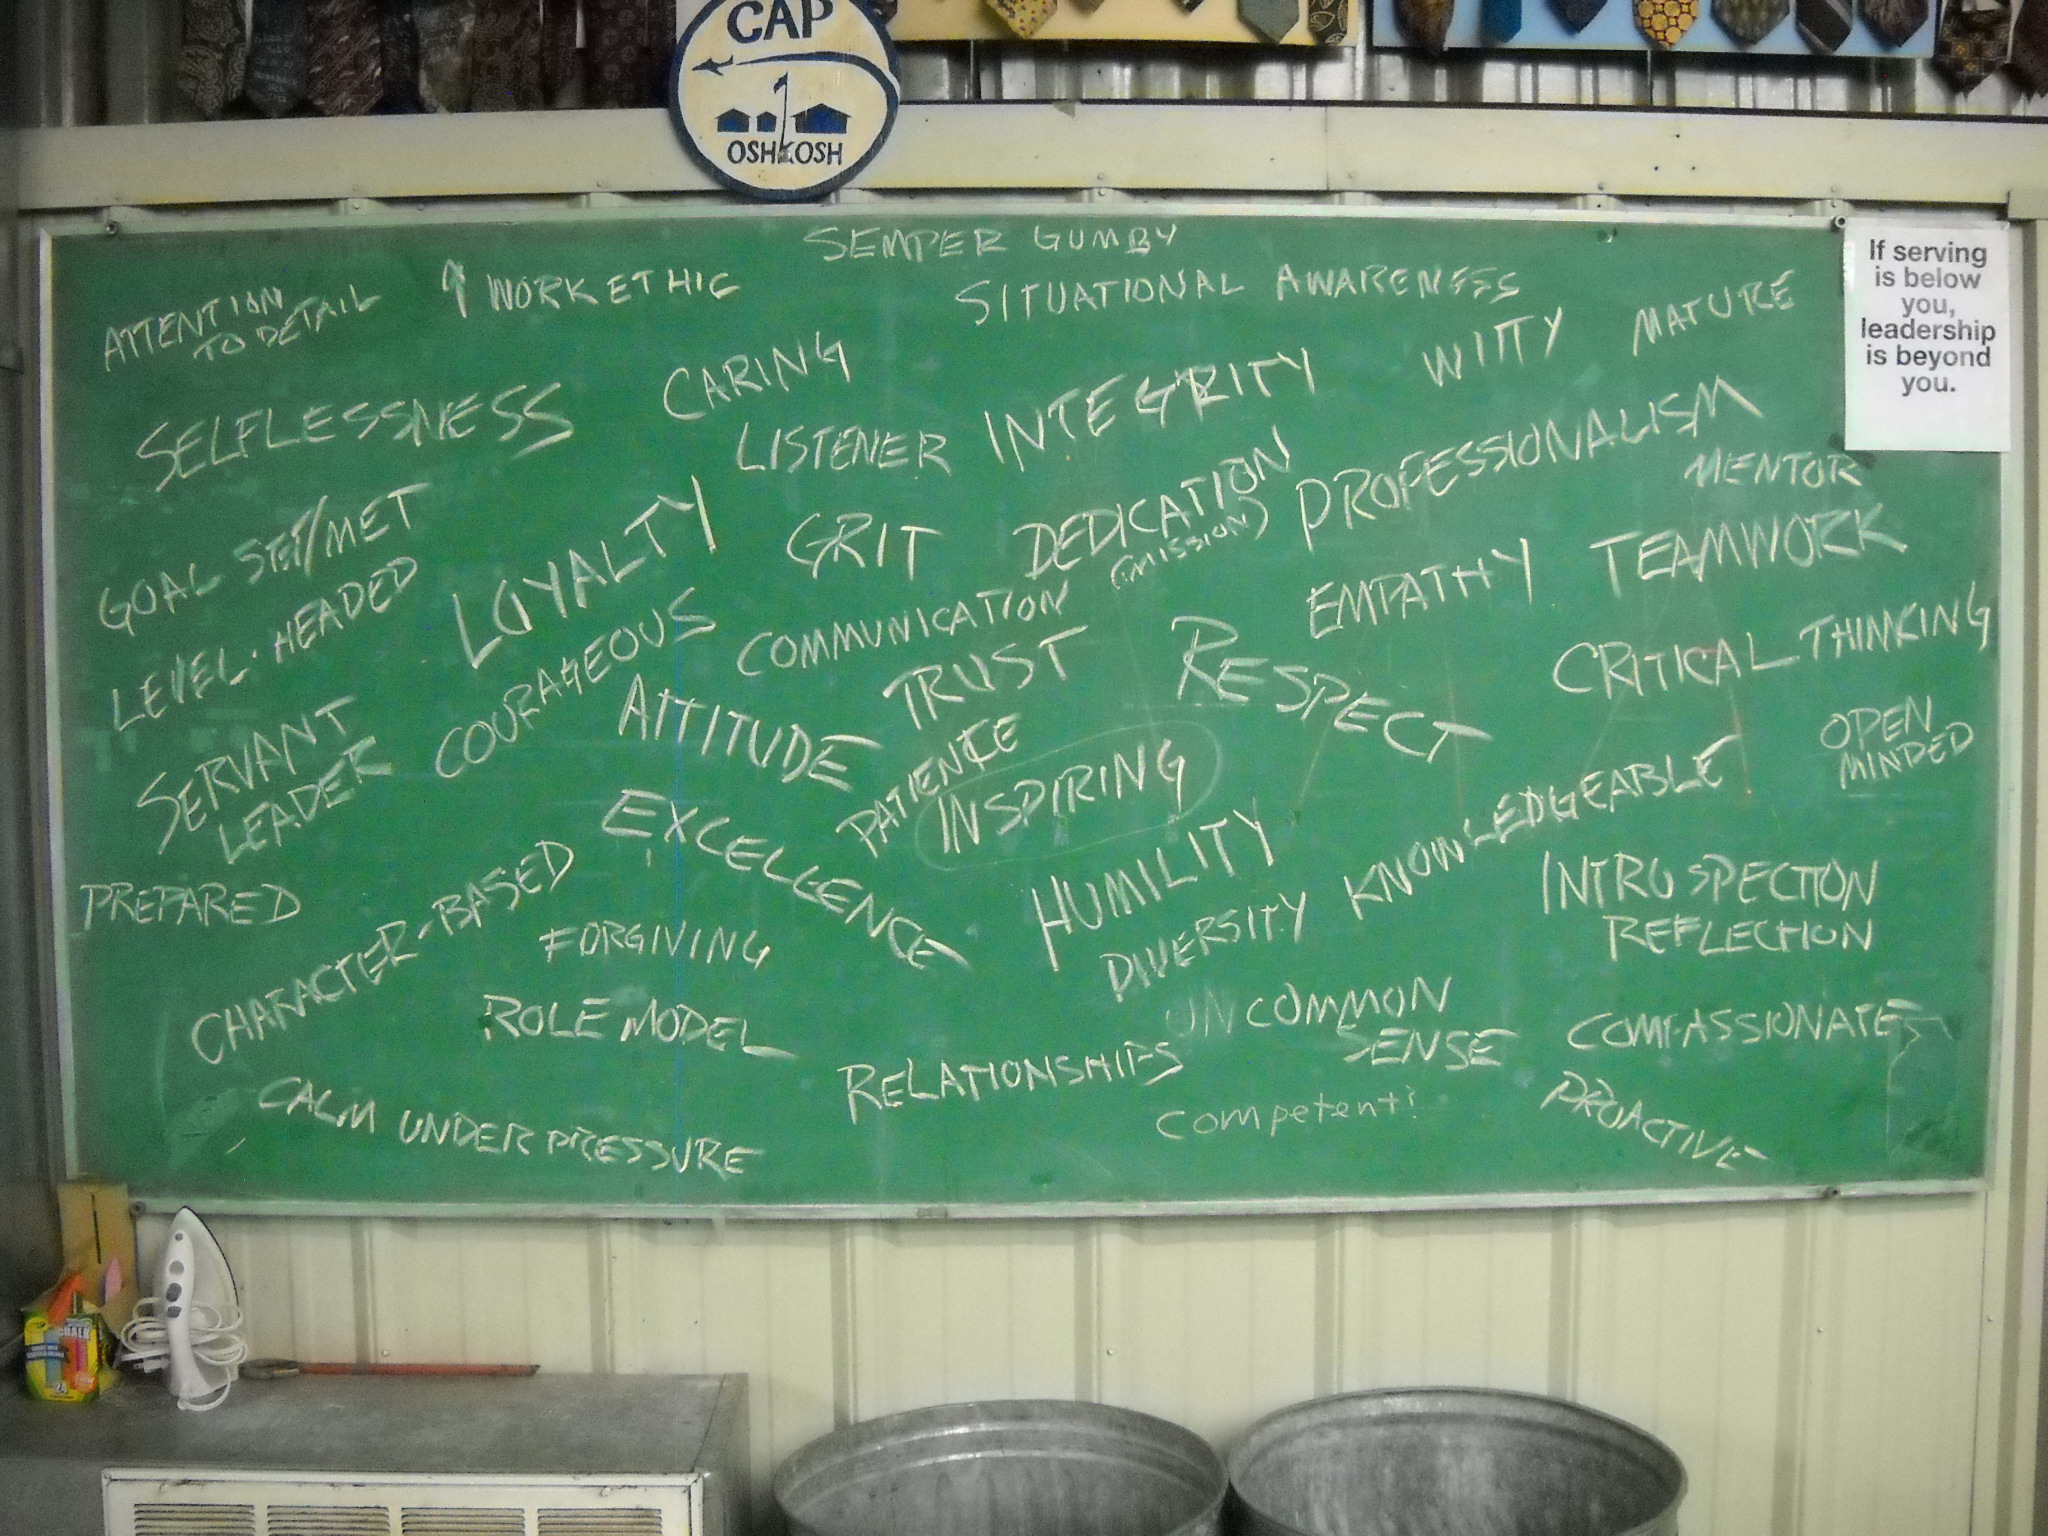 CAP
OSHKOSH
SEMPER GUMBY
ATTENTION
TO DETAIL
↑ WORK ETHIC
SITUATIONAL AWARENESS
WITTY
MATURE
If serving
is below
you,
leadership
is beyond
you.
SELFLESSNESS
CARING
LISTENER
INTEGRITY
PROFESSIONALISM
MENTOR
GOAL SET/MET
LOYALTY
GRIT
DEDICATION
(MISSION)
EMPATHY
TEAMWORK
LEVEL-HEADED
COURAGEOUS
COMMUNICATION
TRUST
RESPECT
CRITICAL THINKING
OPEN
MINDED
SERVANT
LEADER
ATTITUDE
PATIENCE
INSPIRING
EXCELLENCE
HUMILITY
KNOWLEDGEABLE
PREPARED
CHARACTER-BASED
FORGIVING
DIVERSITY
INTROSPECTION
REFLECTION
ROLE MODEL
UNCOMMON
SENSE
COMPASSIONATE
RELATIONSHIPS
CALM UNDER PRESSURE
competent?
PROACTIVE
CHALK
24